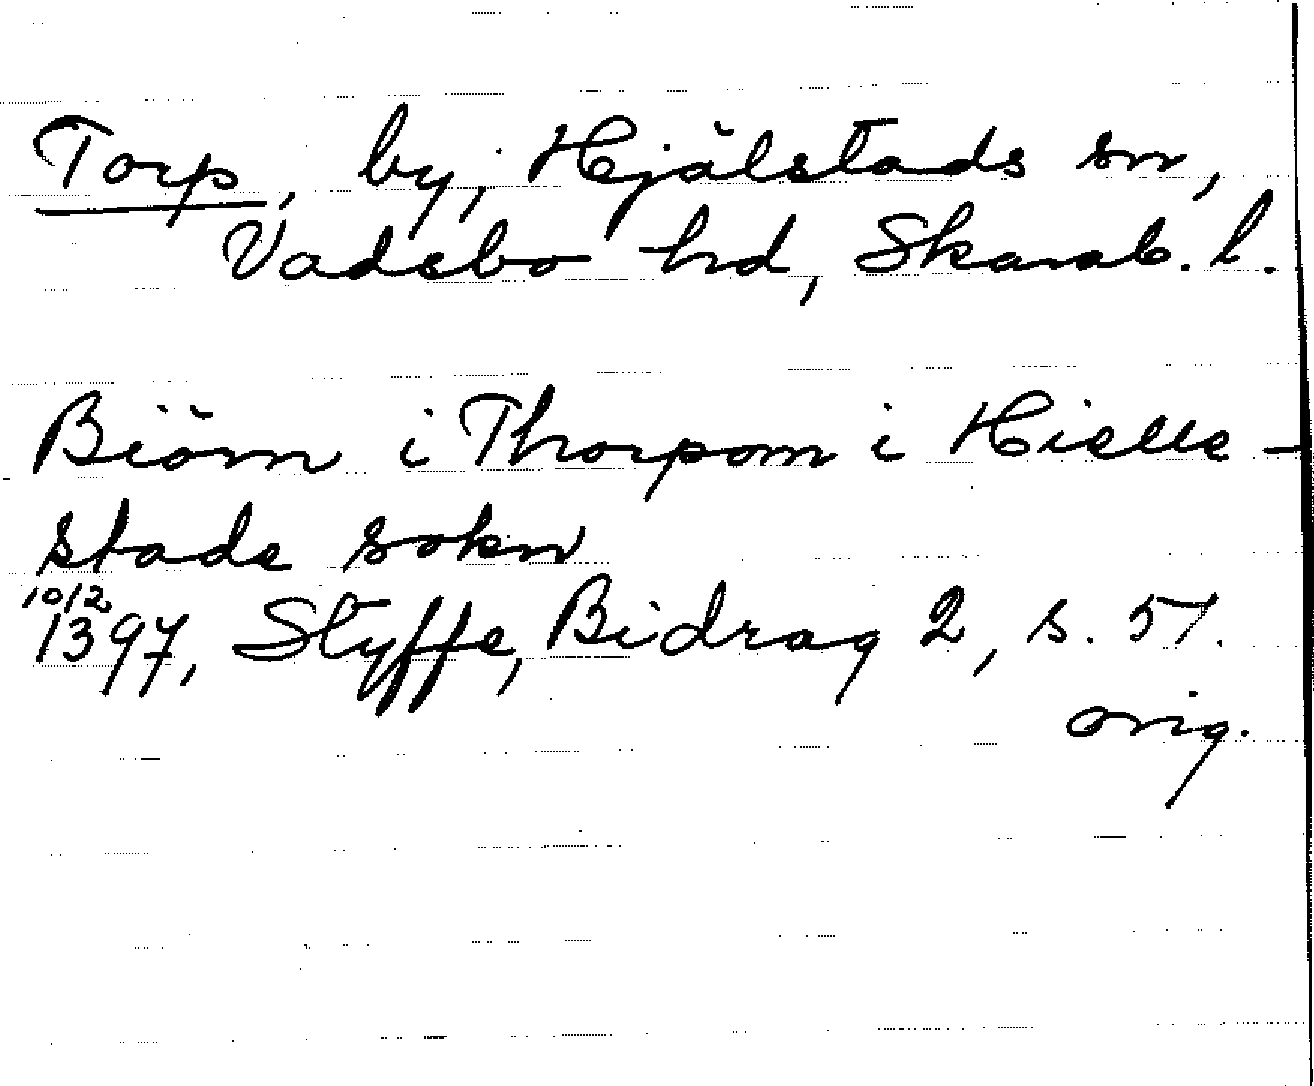 Torp, by, Hjälstads sn,
Vadsbo hd, Skarab. l.
Biörn i Thorpom i Hielle-
stade sokn
10/2
1397, Styffe, Bidrag 2, s. 57.
orig.